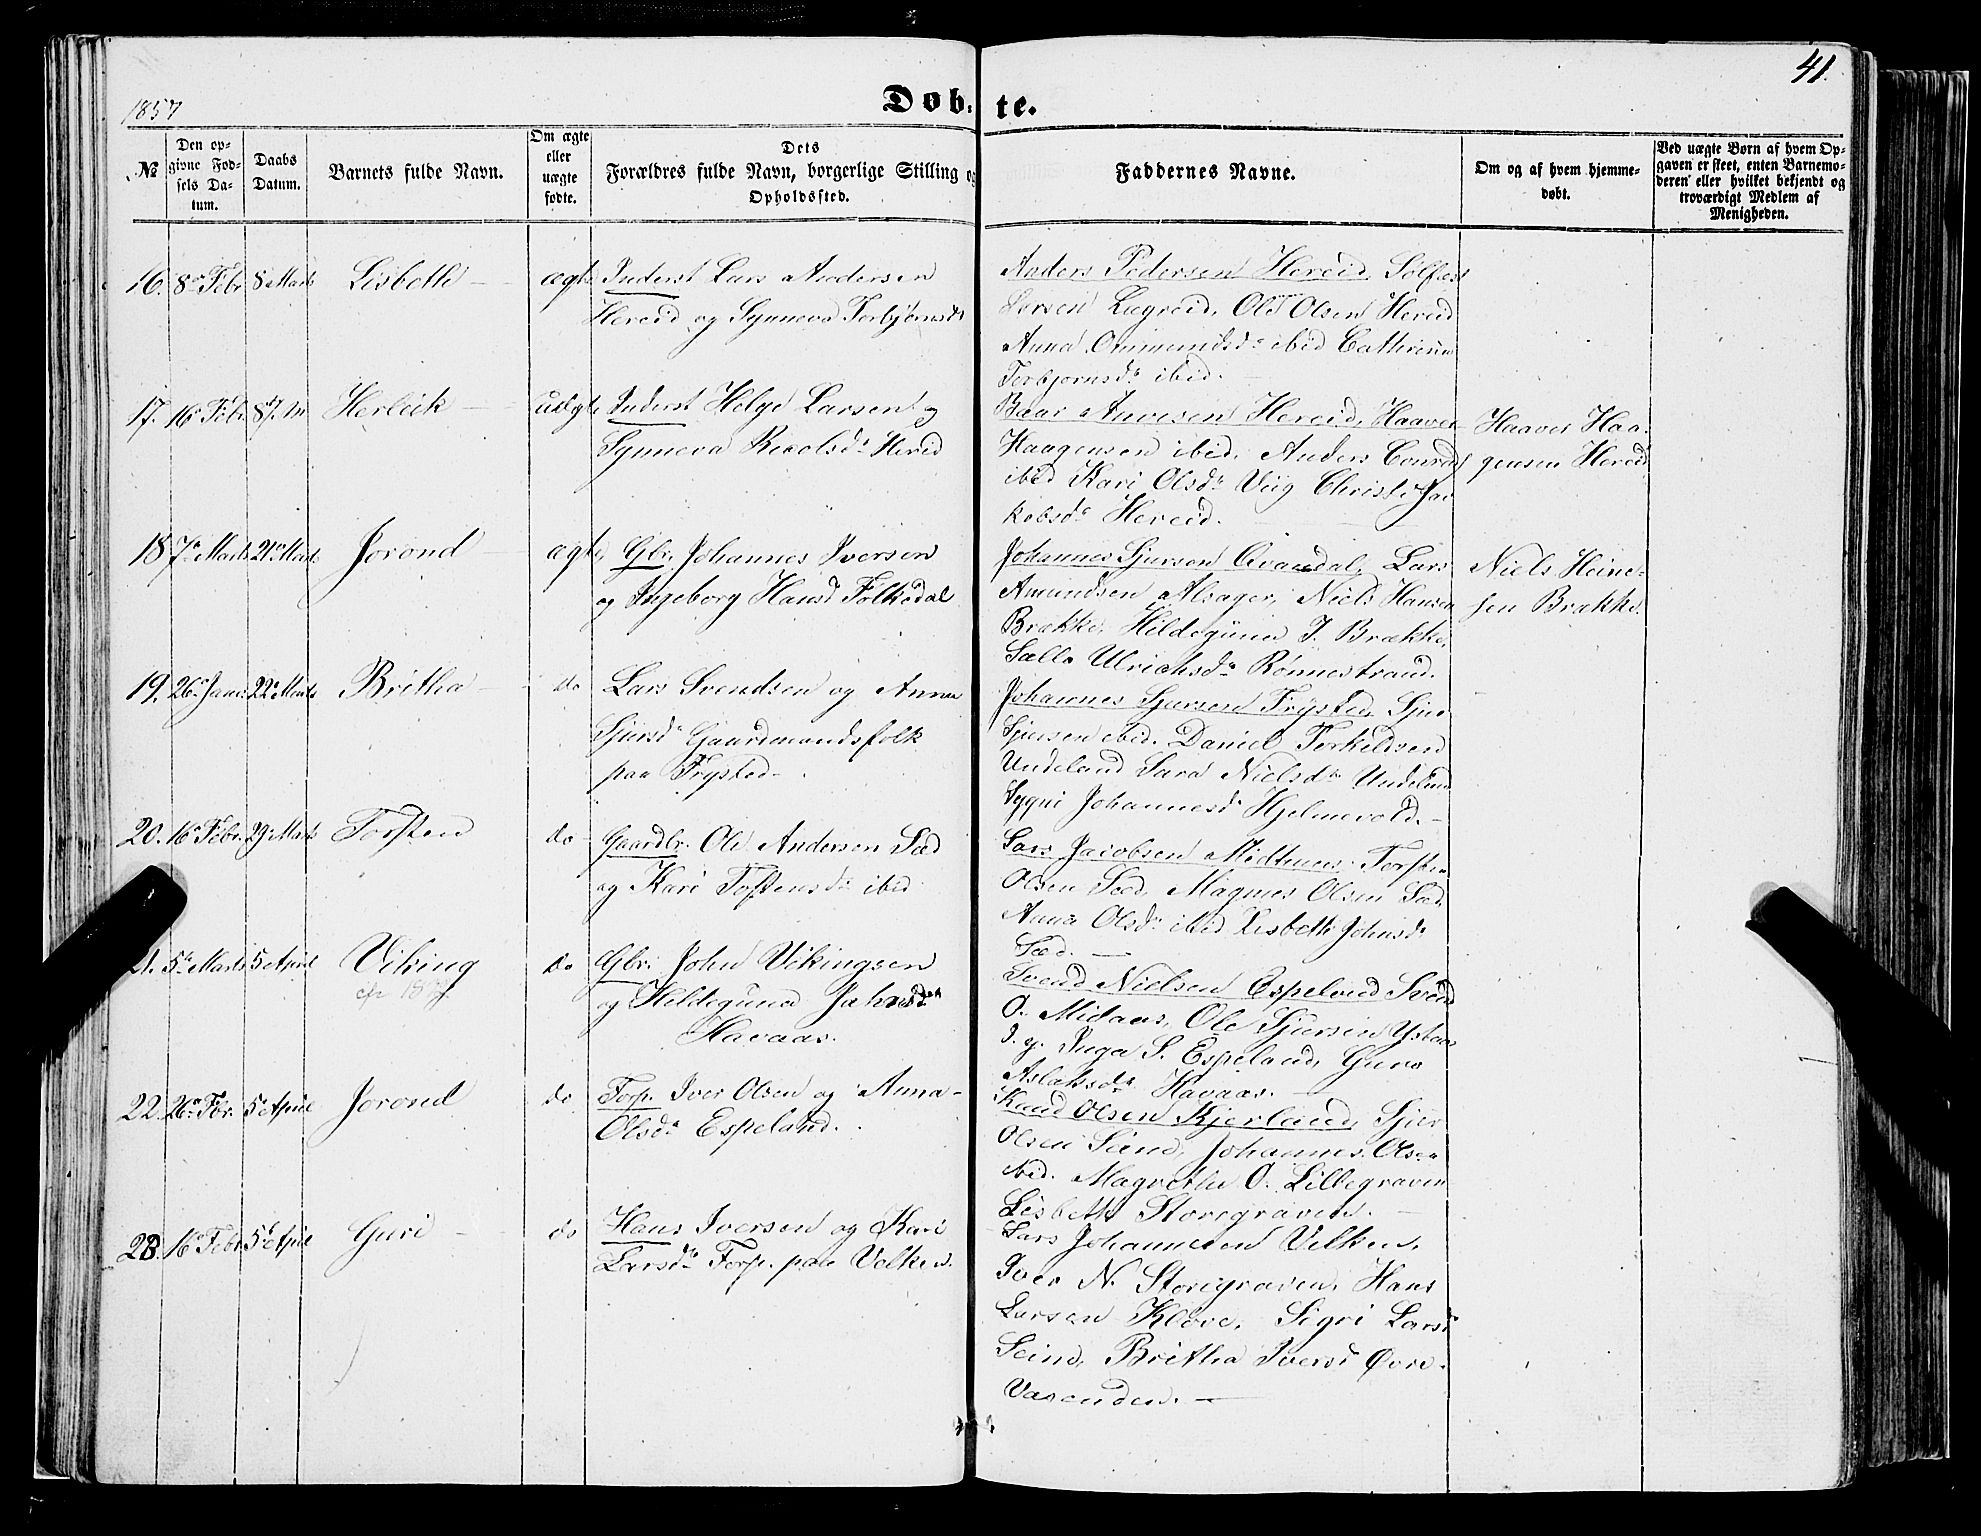 41.
1857
Døb- te.
№
Den op-
givne Fød-
sels Da-
tum.
Daabs
Datum.
Barnets fulde Navn.
Om ægte
eller
uægte
fødte.
Dets
Forældres fulde Navn, borgerlige Stilling og
Opholdssted.
Faddernes Navne.
Om og af hvem hjemme-
døbt.
Ved uægte Børn af hvem Op-
gaven er skeet, enten Barnemo-
deren eller hvilket bekjendt og
troværdigt Medlem af
Menigheden.
16. 8de Febr 8 Marts Lisbeth ægte Inderst Lars Andersen
Hereid og Synneva Torbjørnsdr
Anders Pedersen Hereid,
Lægreid, Ole Olsen Hereid
Anna Ommundsdr ibid Cathrina
Torbjørnsdr ibid.
17. 16 Febr 8 M Herleik uægte Inderst Helge Larsen og
Synneva Hereid
Hereid, Haaver
Haagensen ibid, Anders Conrads
ibid Kari Olsdr Viig Christi Ja-
kobsdr Hereid.
Haaver Haa-
gensen Hereid
18 7de Marts 21 Marts Jorond ægte Gbr. Johannes Iversen
og Ingeborg Hansd Folkedal
Johannes Sjursen Qvandal, Lars
Amundsen Alsager, Niels Hansen
Brække, Hildeguna J. Brække,
Ulrichsdr Rønnestrand.
Niels Heine-
sen Brække.
19. 26 Janr 22 Marts Britha do Lars Svendsen og Anna
Sjursdr Gaardmandsfolk
paa Trysted
Johannes Sjursen Trysted, Sjur
Sjursen ibid. Daniel Torkildsen
Undeland Sara Nielsdr Undeland
Johannesdr Hjelmevold.
20. 16 Febr. 29 Marts Torsten do Gaardbr. Ole Andersen Sæd
og Kari Torstensdr ibid
Lars Jacobsen Midtnæs, Torsten
Olsen Sæd, Magnus Olsen Sæd,
Anna Olsdr ibid Lisbeth Johnsdr
Sæd.
21. 5te Marts 5 April Viking do Gbr. John Vikingsen
og Hildeguna
Havaas.
Svend Nielsen Espeland Svend
O. Midaas, Ole Sjursen Ystaas
Inga S. Espeland, Guro
Aslaksdr Havaas.
22. 26 Fbr. 5 April Jorond do Torp. Iver Olsen og Anna
Olsdr Espeland.
Knud Olsen Kjerland, Sjur
Olsen Seim, Johannes Olsen
ibid. Magrethe O. Lillegraven
Lisbeth Storegraven.
23. 16 Febr 5te April Guri do Hans Iversen og Kari
Larsdr Torp. paa Velken.
Lars Johannesen Velken,
Iver N. Storegraven, Hans
Larsen Kløve, Sigri Larsd
Seim, Britha Iversd Øvre
Vasenden.